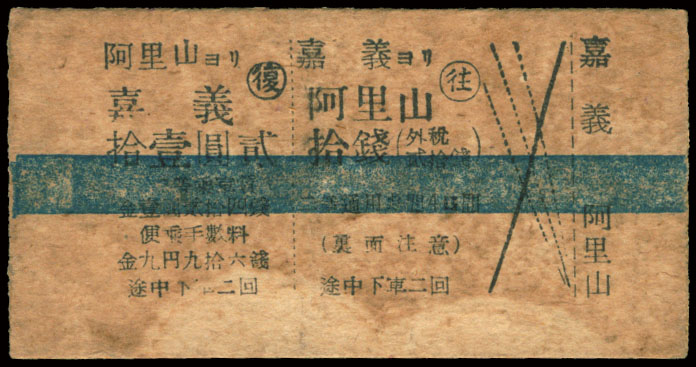 阿里山ヨリ
復
嘉義
拾壹圓貳
便乘手數料
金九円九拾六錢
途中下車二回
嘉義ヨリ
往
阿里山
拾錢
外稅
(裏面注意)
途中下車二回
嘉義
阿里山